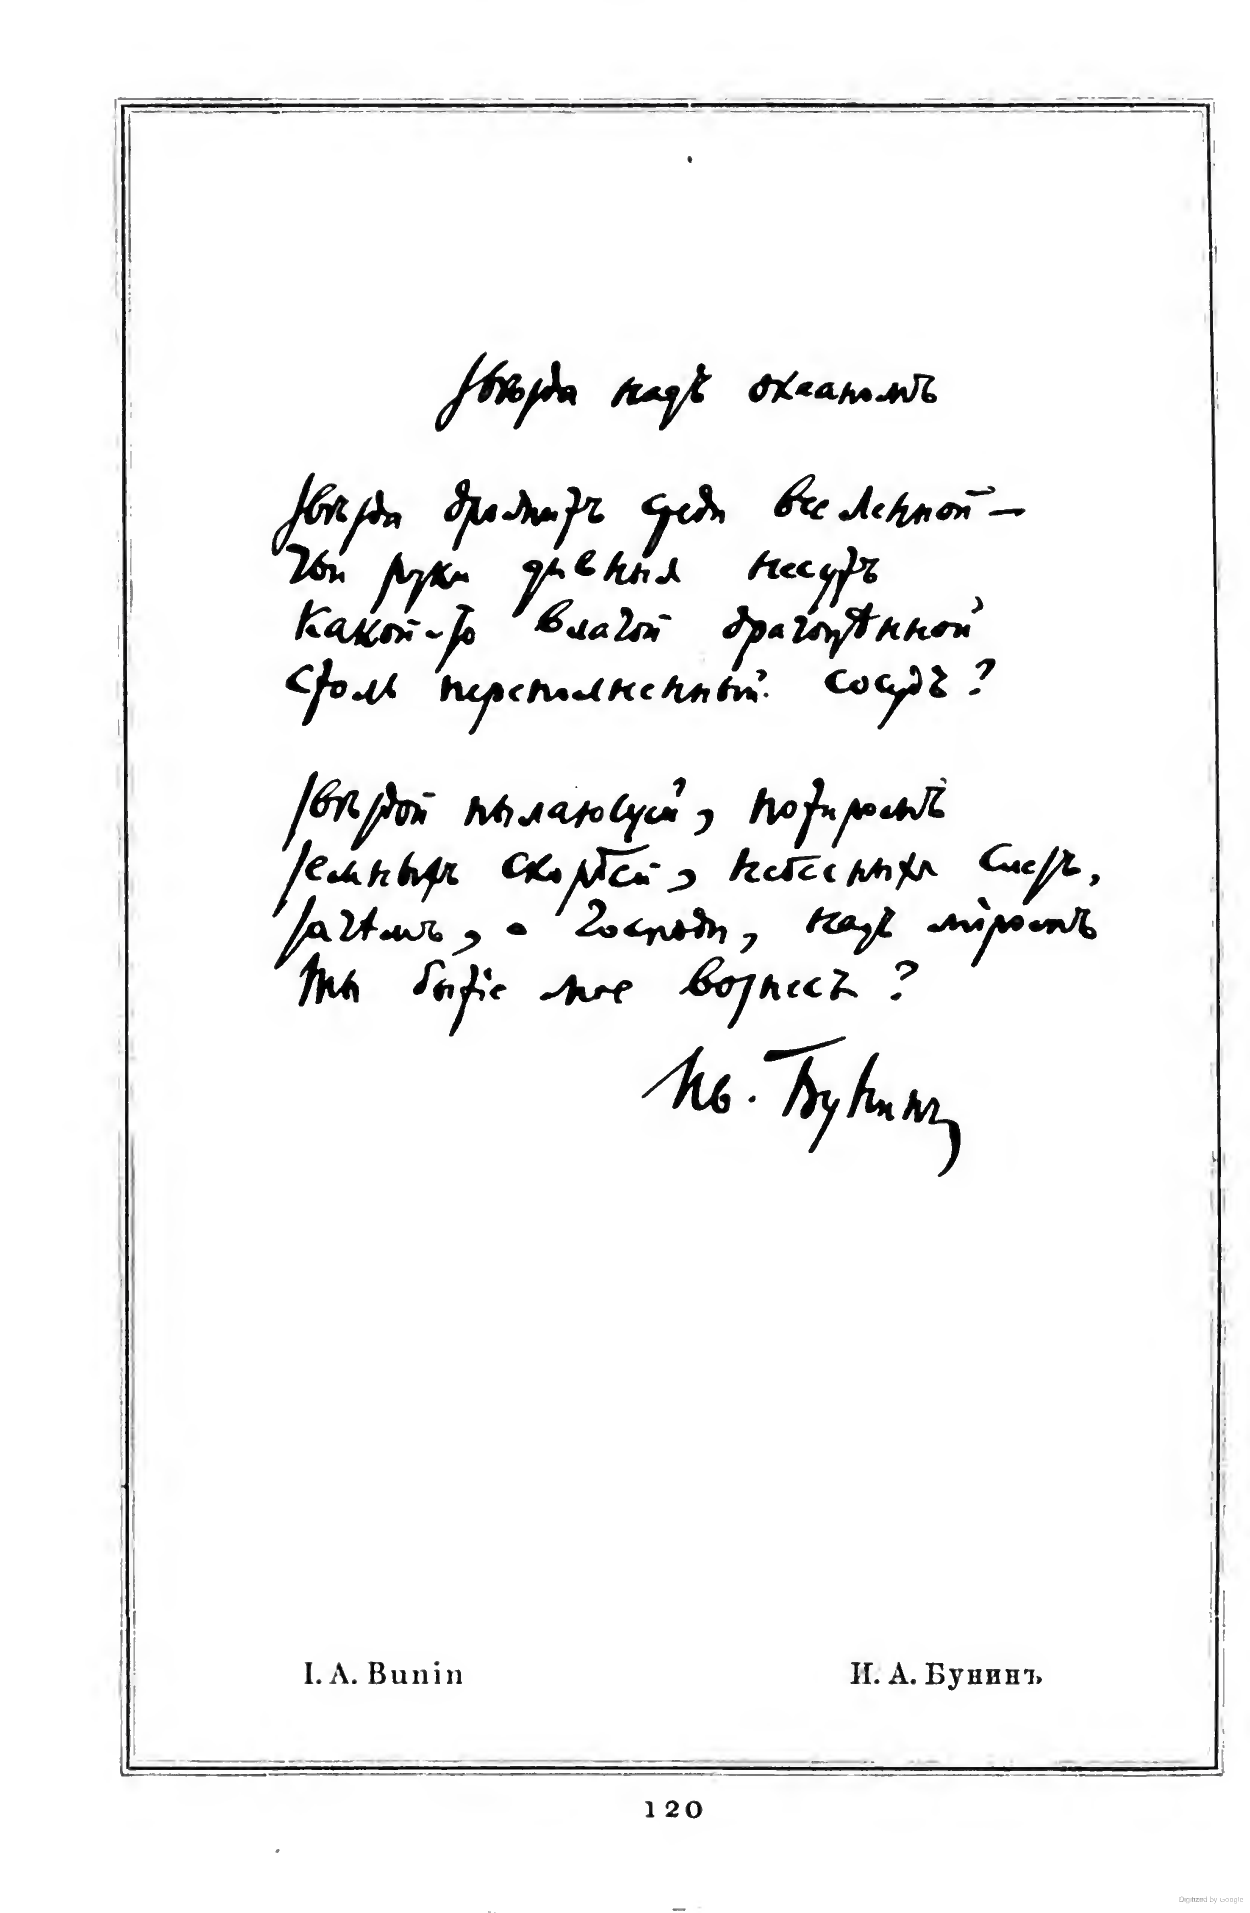 Звѣзда надъ океаномъ
Звѣзда дрожитъ среди вселенной —
Чьи руки дивныя несутъ
Какой-то влагой драгоцѣнной
Столь переполненный сосудъ?
Звѣздой пылающей, потиромъ
Земныхъ скорбей, небесныхъ слезъ,
Зачѣмъ, о Господи, надъ міромъ
Ты бытіе мое вознесъ?
Ив. Бунинъ
I. A. Bunin
И. А. Бунинъ
120
Digitized by Google